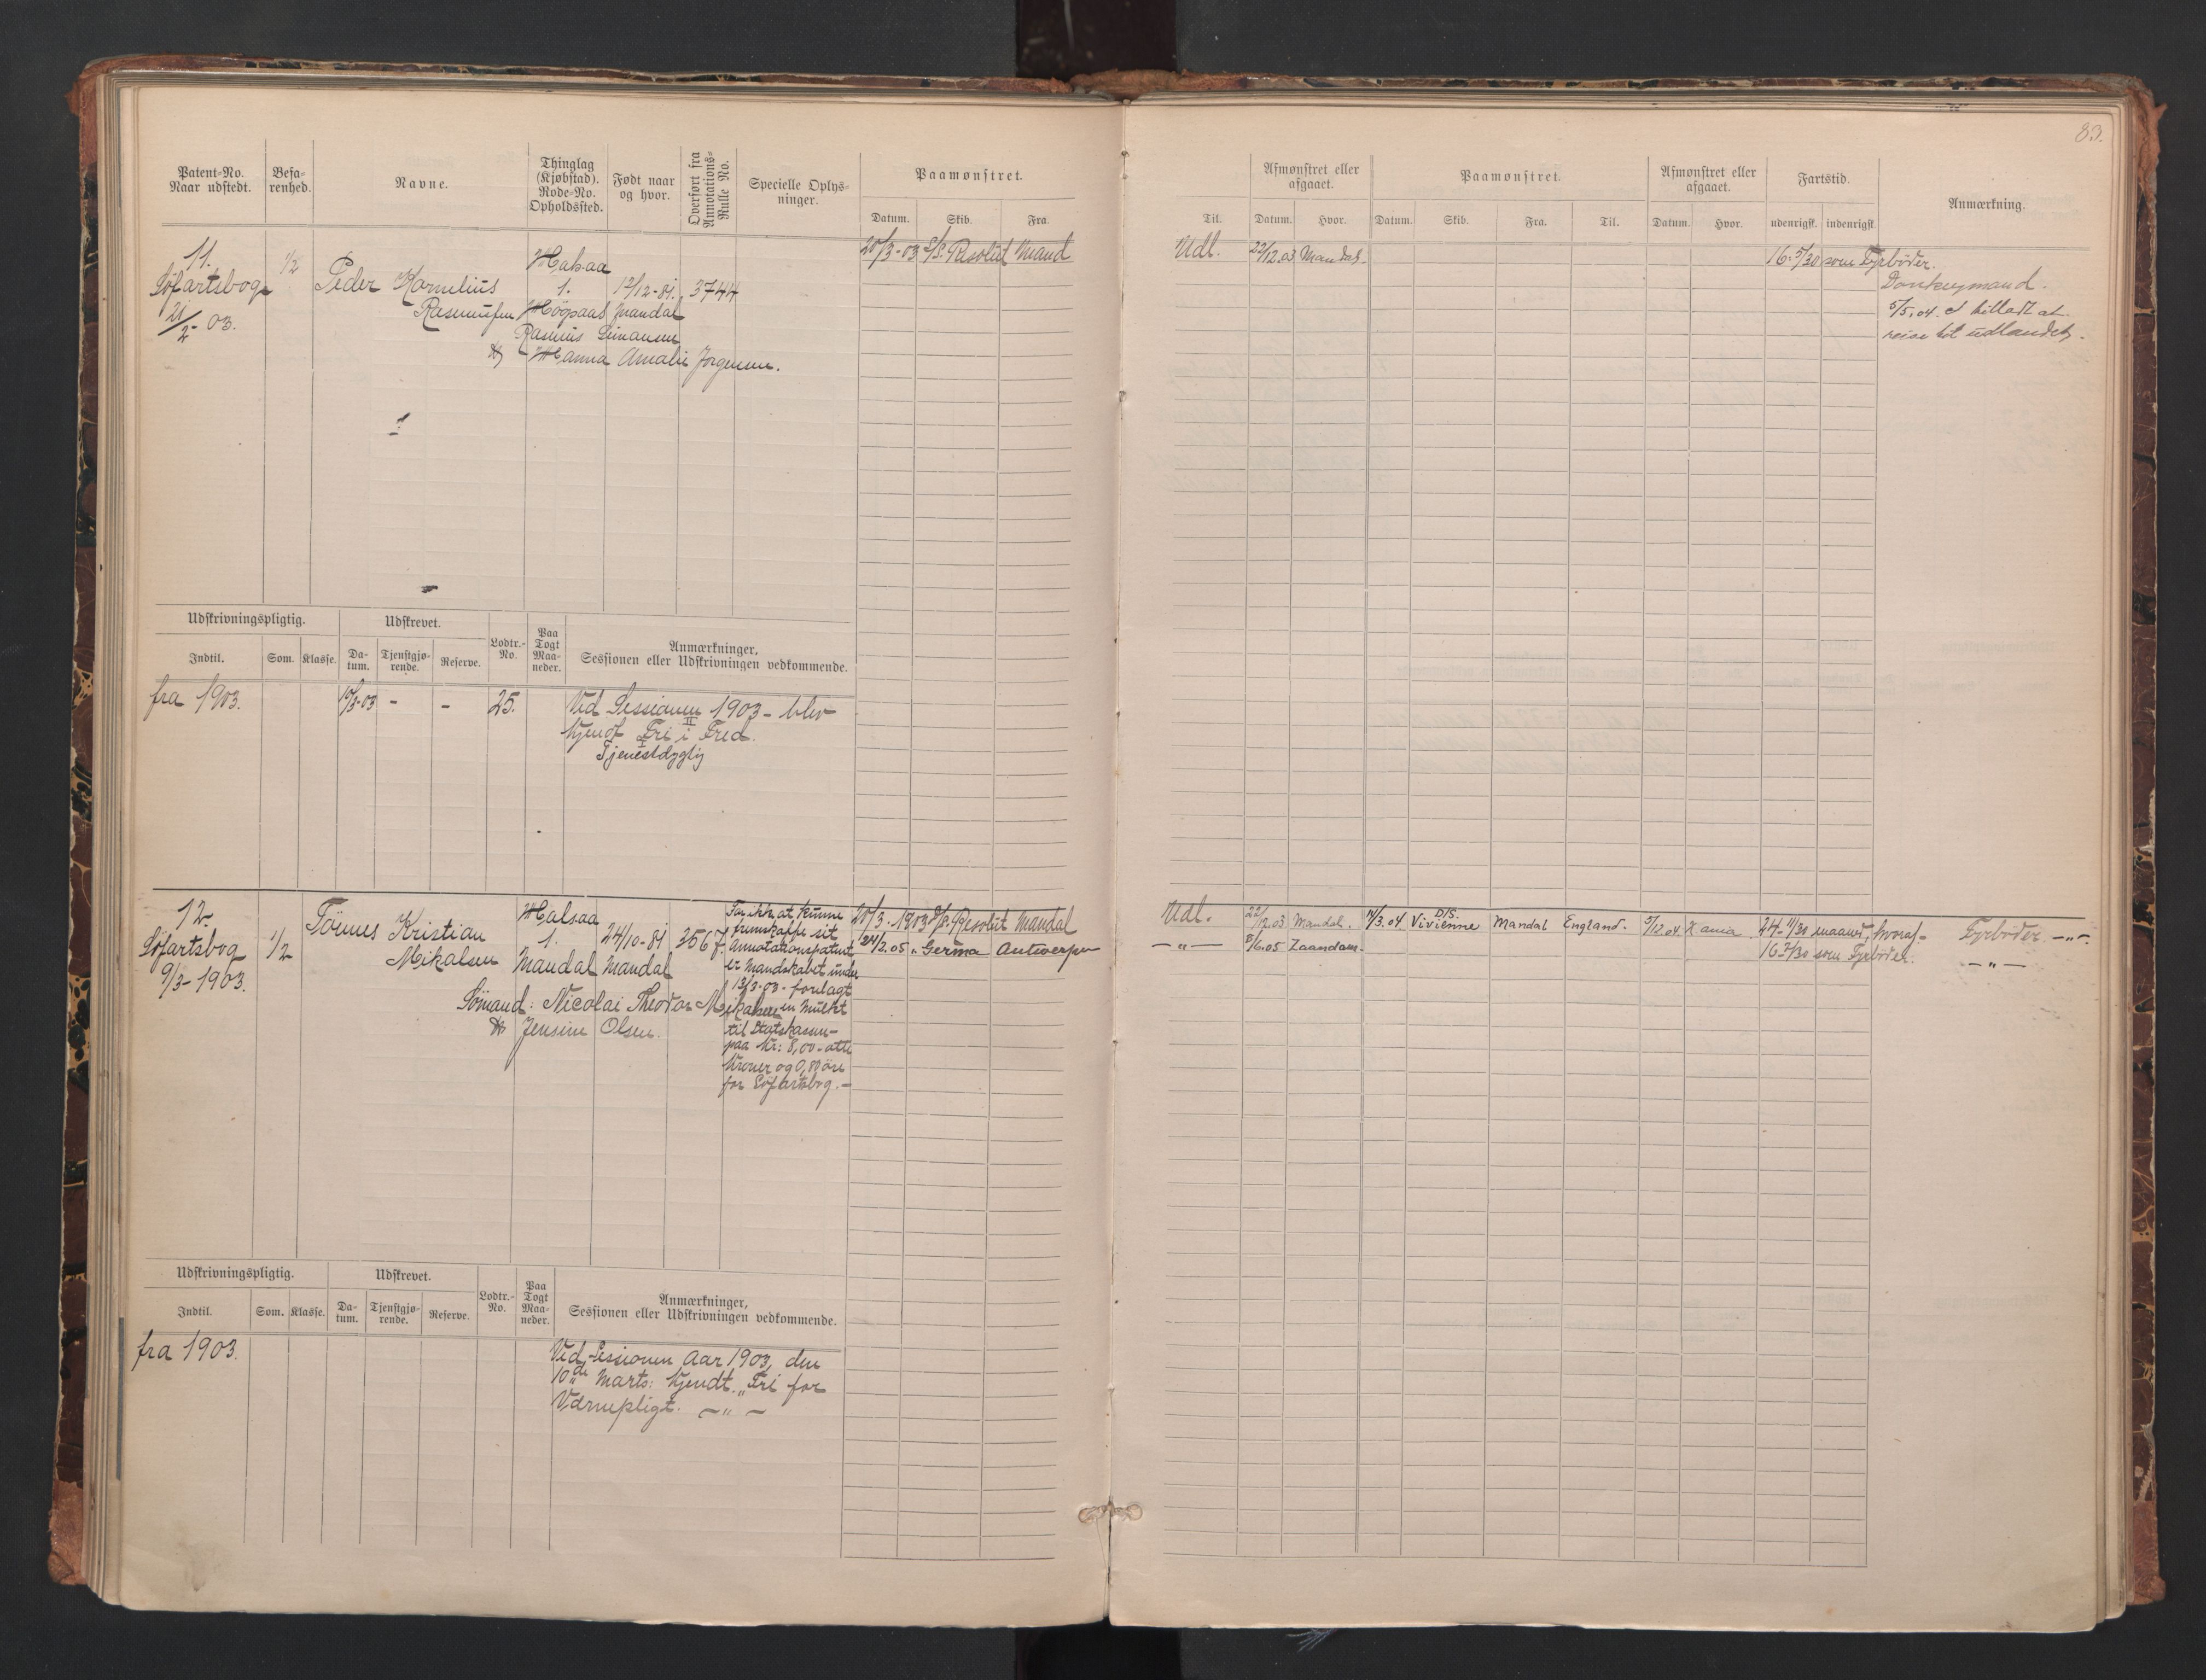 83.
Patent-No.
Naar udstedt.
Befa-
renhed.
Navne.
Thinglag
(Kjøbstad).
Rode-No.
Opholdssted.
Født naar
og hvor.
Overført fra
Annotations-
Rulle No.
Specielle Oplys-
ninger.
Paamønstret.
Datum.
Skib.
Fra.
Til.
Afmønstret eller
afgaaet.
Datum.
Hvor.
Paamønstret.
Datum.
Skib.
Fra.
Til.
Afmønstret eller
afgaaet.
Datum.
Hvor.
Fartstid.
udenrigsk.
indenrigsk.
Anmærkning.
11.
Söfartsbog
21/2-03.
1/2
Peder Kornelius
Rasmussen
Halsaa
1.
Högsaas
12/12-81.
Mandal
3744
Rasmus
& Hanna Amalie Jörgensen.
20/3-03 S/S. Resolut Mand
Udl. 22/12.03 Mandal.
16 5/30 som Fyrböder.
Donkeymand.
5/5.04. at
reise til udlandet.
Udskrivningspligtig.
Indtil.
Som.
Klasse.
Udskrevet.
Da-
tum.
Tjenstgjø-
rende.
Reserve.
Lodtr.-
No.
Paa
Togt
Maa-
neder.
Anmærkninger,
Sessionen eller Udskrivningen vedkommende.
fra 1903.
10/3-03 - - 25.
Ved Sessionen 1903 - blev
kjendt Fri i Fred.
II
Tjenestdygtig
12.
Söfartsbog
9/3-1903.
1/2
Tönnes Kristian
Mikalsen
Halsaa
1.
Mandal
24/10-81
Mandal
3567
Sömand: Nicolai Theodor Mikalsen
& Jensine Olsen.
For ikke at kunne
fremskaffe sit
Annotationspatent
er Mandskabet under
12/3-03- forelagt
en Mulkt
til Statskassen-
paa Kr: 8,00-otte
Kroner og 0,80 öre
for Söfartsbog.-
20/3-1903 S/S. Resolut Mandal
24/2.05 „ Germa Antwerpen
Udl. 22/12.03 Mandal. 14/3.04 D/S. Vivienne Mandal England. 5/12.04 X ania 24-11/30 maaned, hvoraf-
16 7/30 som Fyrböder.
Fyrböder. -„-
-„- 8/6.05 Zaandam.
-„-
Udskrivningspligtig.
Indtil.
Som.
Klasse.
Udskrevet.
Da-
tum.
Tjenstgjø-
rende.
Reserve.
Lodtr.-
No.
Paa
Togt
Maa-
neder.
Anmærkninger,
Sessionen eller Udskrivningen vedkommende.
fra 1903.
Ved Sessionen Aar 1903, den
10de Marts: kjendt „Fri for
Værnepligt. -„-